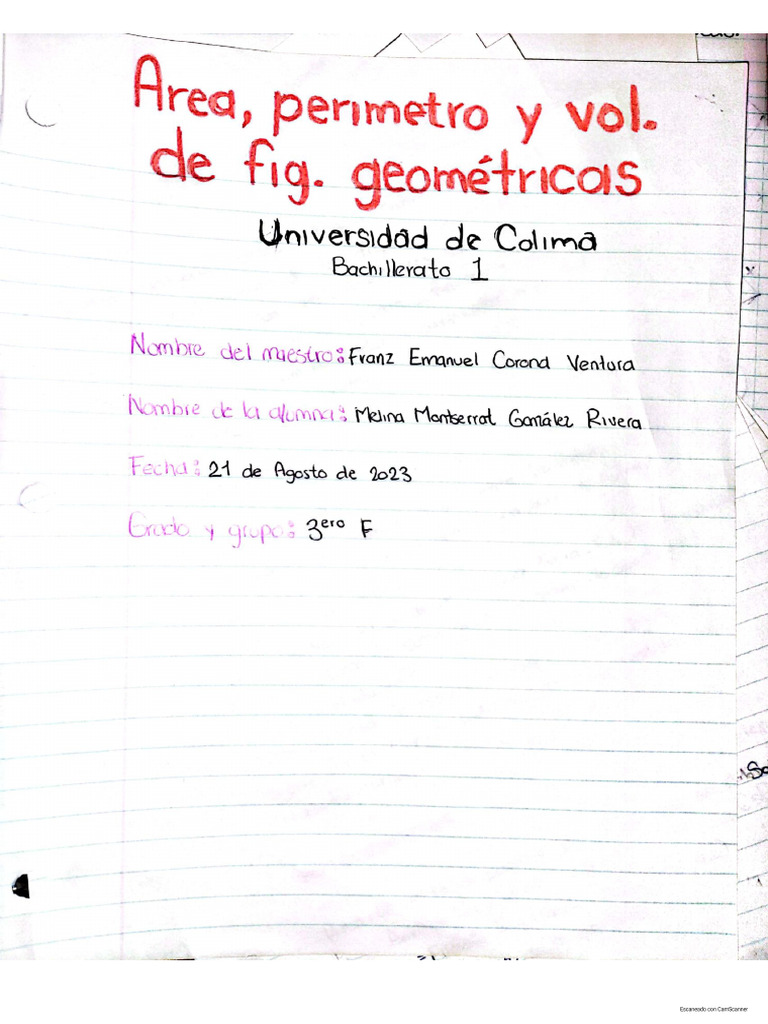 Area, perimetro y vol.
de fig. geométricas
Universidad de Colima
Bachillerato 1
Nombre del maestro: Franz Emanuel Corona Ventura
Nombre de la alumna: Melina Montserrat González Rivera
Fecha: 21 de Agosto de 2023
Grado y grupo: 3ero F
Escaneado con CamScanner